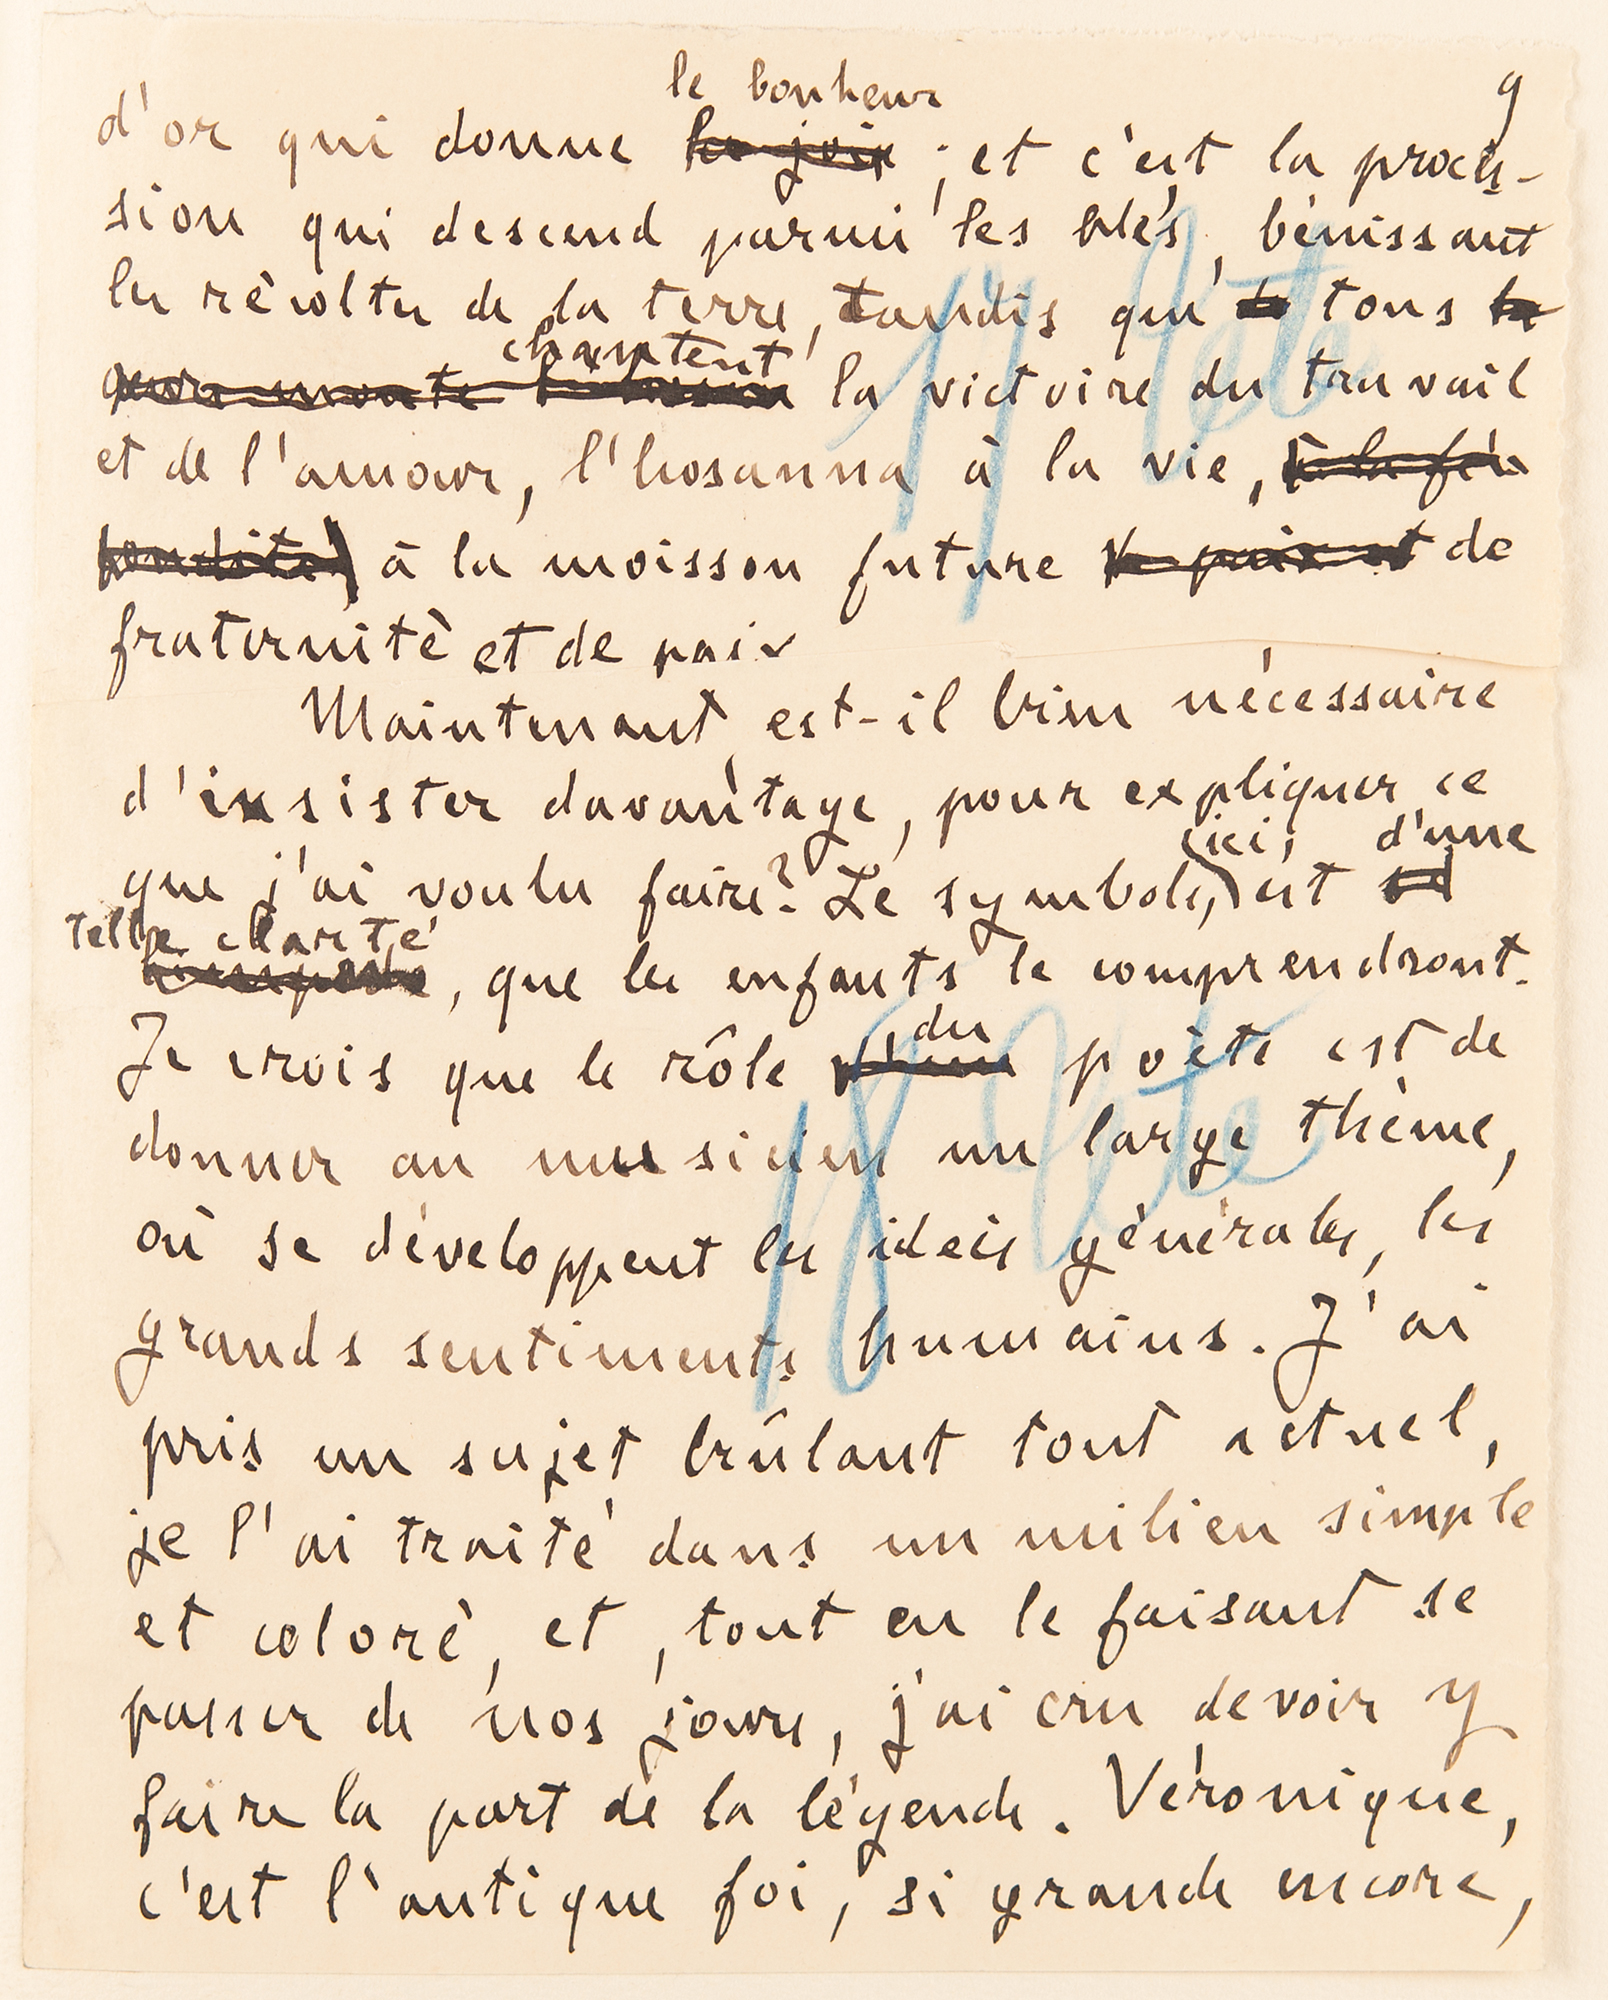 9
le bonheur
d'or qui donne la joie ; et c'est la proces-
sion qui descend parmi les blés, bénissant
les récoltes de la terre, tandis que tous
chantent
la victoire du travail
et de l'amour, l'hosanna à la vie, à la fé-
condité à la moisson future de paix et de
fraternité et de paix
Maintenant est-il bien nécessaire
d'insister davantage, pour expliquer ce
ici, d'une
que j'ai voulu faire? Le symbole, est si
telle clarté
, que les enfants le comprendront.
du
Je crois que le rôle d'un poète est de
donner au musicien un large thème,
où se développent les idées générales, les
grands sentiments humains. J'ai
pris un sujet brûlant tout actuel,
je l'ai traité dans un milieu simple
et coloré, et, tout en le faisant se
passer de nos jours, j'ai cru devoir y
faire la part de la légende. Véronique,
c'est l'antique foi, si grande encore,